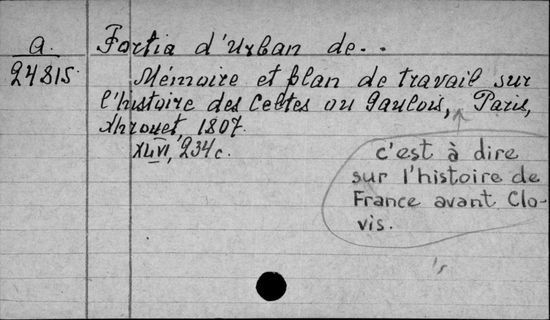 a. Fortia d'Urban de..
24815 Mémoire et plan de travail sur
l'histoire des Celtes ou Gaulois, Paris,
Xhrouet, 1807.
XLVI, 234 c.
c'est à dire
sur l'histoire de
France avant Clo-
vis.